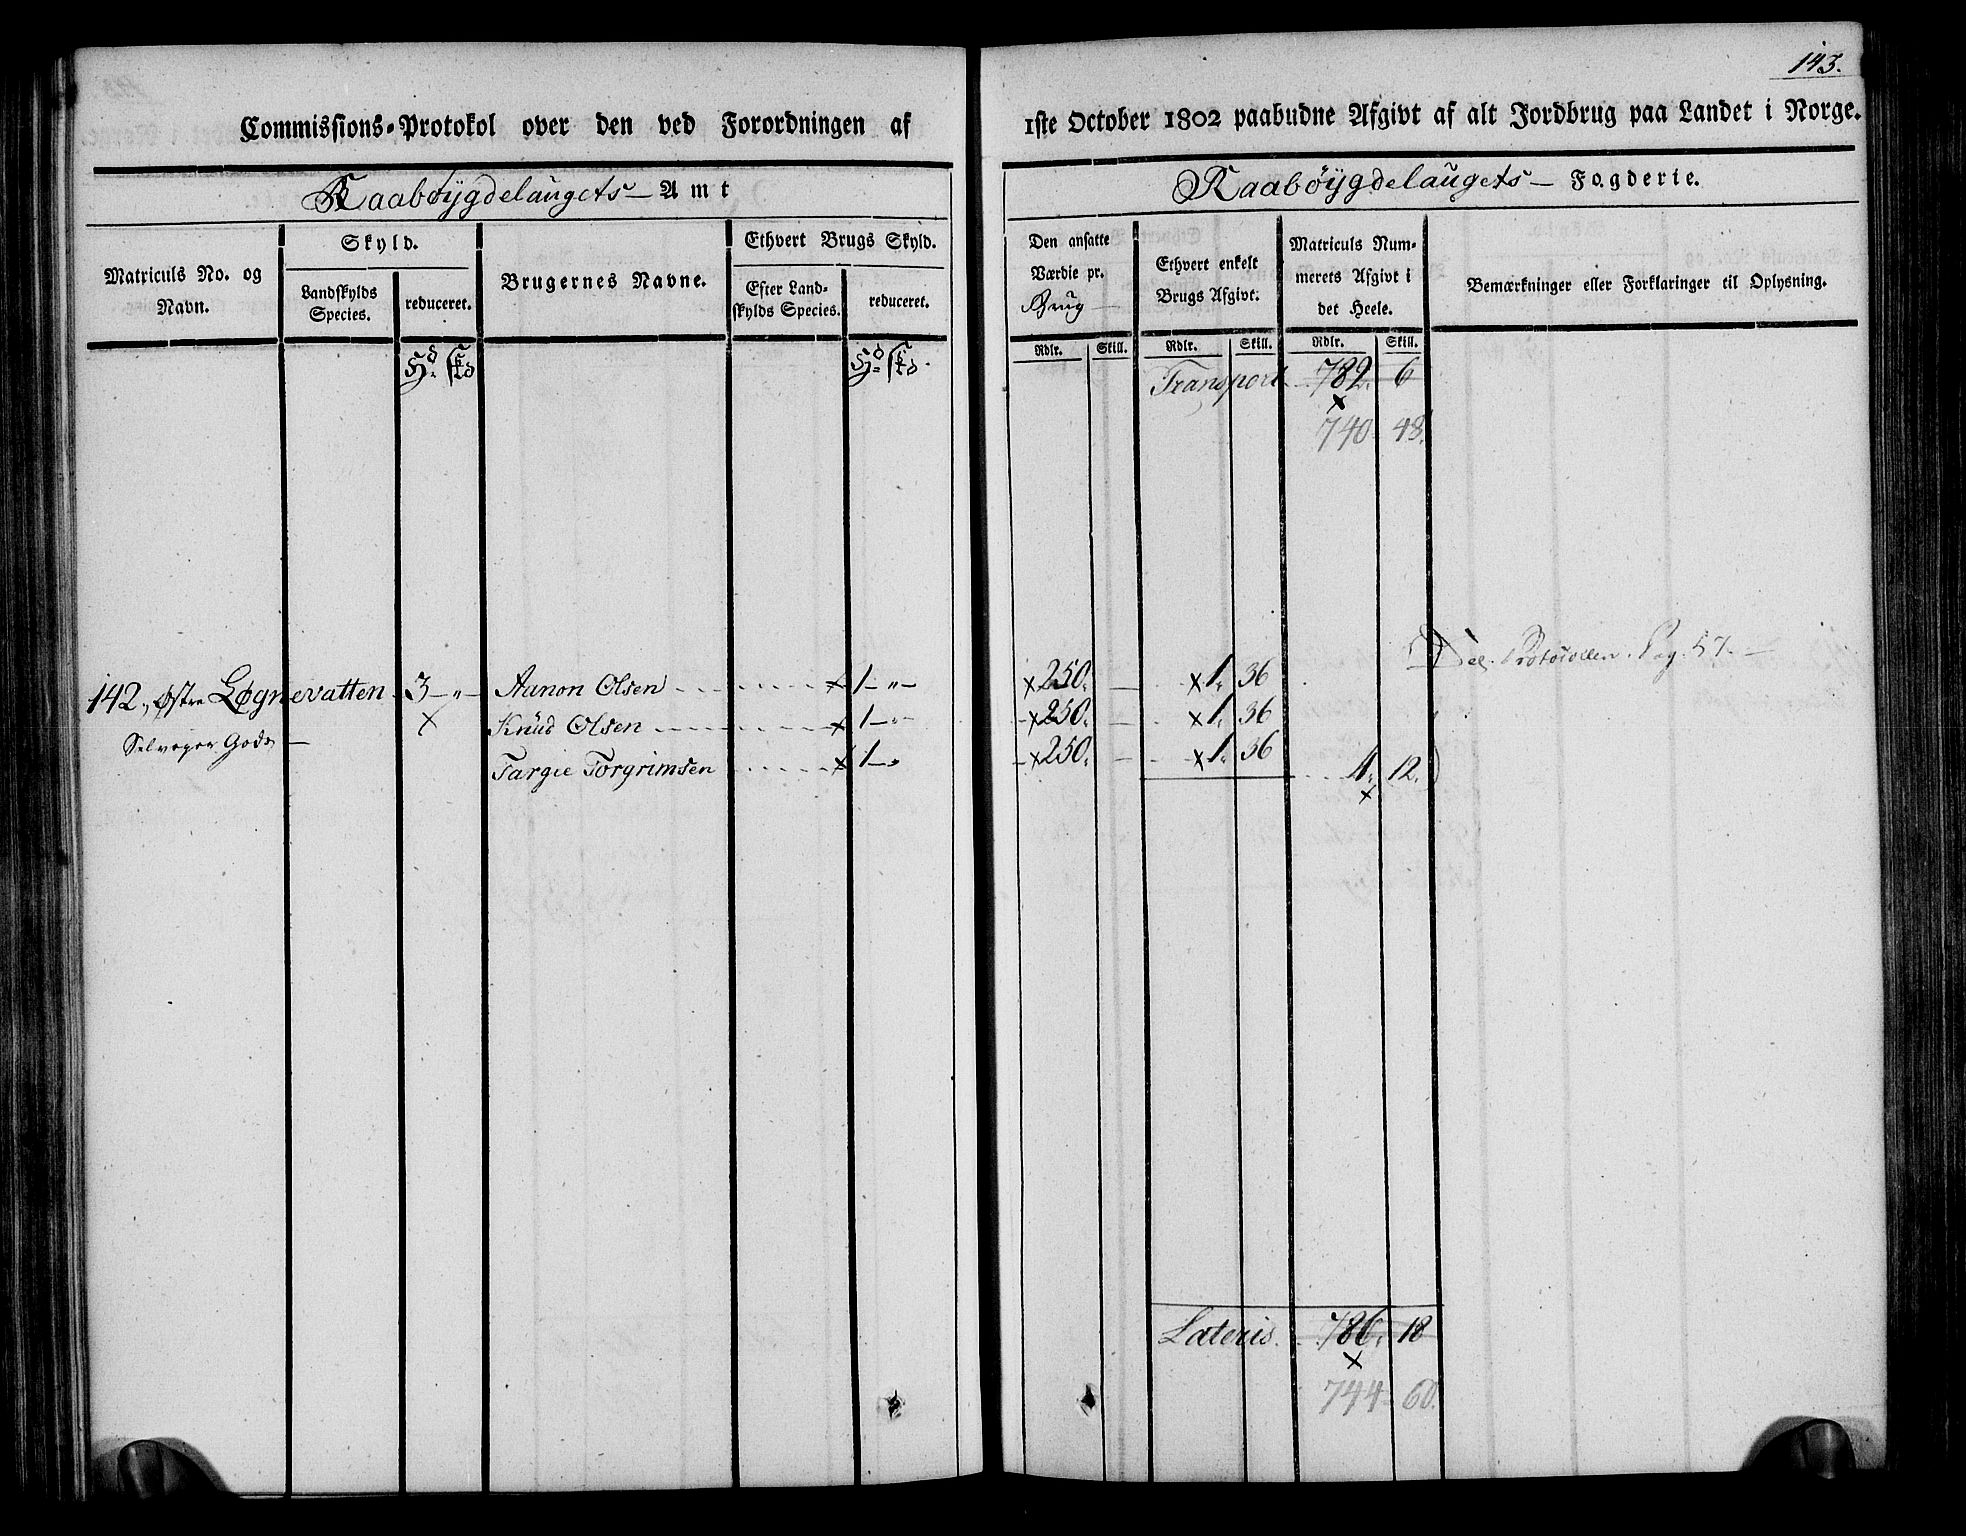 143.
Commissions-Protokol over den ved Forordningen af 1ste October 1802 paabudne Afgivt af alt Jordbrug paa Landet i Norge.
Raabøygdelaugets — Amt
Raabøygdelaugets — Fogderie.
Matriculs No. og Navn.
Skyld.
Landskylds Species.
reduceret.
Brugernes Navne.
Ethvert Brugs Skyld.
Efter Landskylds Species.
reduceret.
Den ansatte Værdie pr. Brug
Ethvert enkelt Brugs Afgivt.
Matriculs Nummerets Afgivt i det Heele.
Bemærkninger eller Forklaringer til Oplysning.
Rdlr. Skill. Rdlr. Skill. Rdlr. Skill.
Hd. Skd Hd. Skd.
Transport 789. 6
740 48.
Del. Protocollen. Pag. 57. —
142., Østre Løgnevatten 3 — „ — Aanon Olsen x 1 — „ — x 250. — x 1. 36
x Knud Olsen x 1 — „ — x 250. — x 1. 36
Selveyer Gods —
Targie Torgrimsen x 1 — „ x 250. — x 1. 36 4. 12.
x
Lateris. 786. 18
x
744 60.